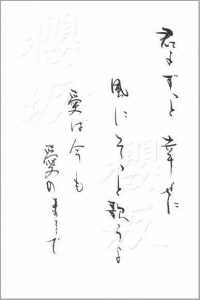 君よずっと幸せに
風にそっと歌うよ
愛は今も
愛のままで
櫻坂
櫻坂